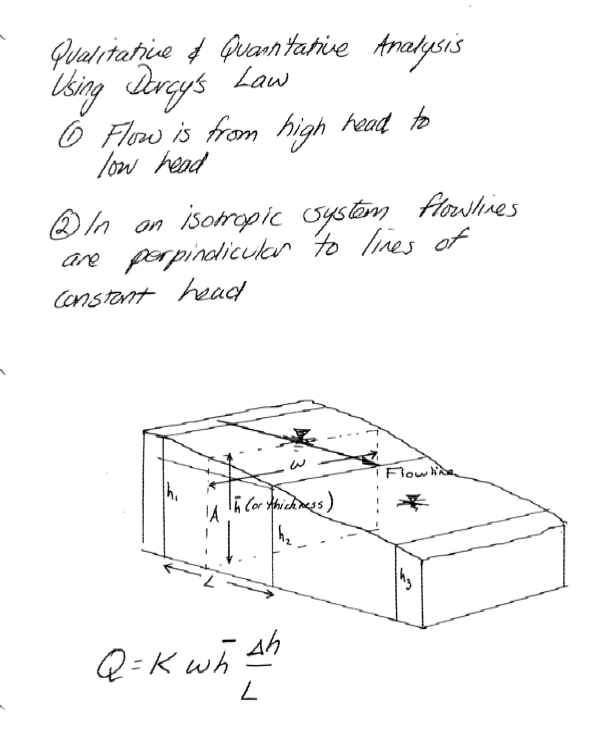 Qualitative & Quantitative Analysis
Using Darcy's Law
① Flow is from high head to
low head
② In an isotropic system flowlines
are perpindicular to lines of
constant head
w
Flowline
h₁
A
h̄ (or thickness)
h₂
h₃
L
Q = K w h̄ Δh
L